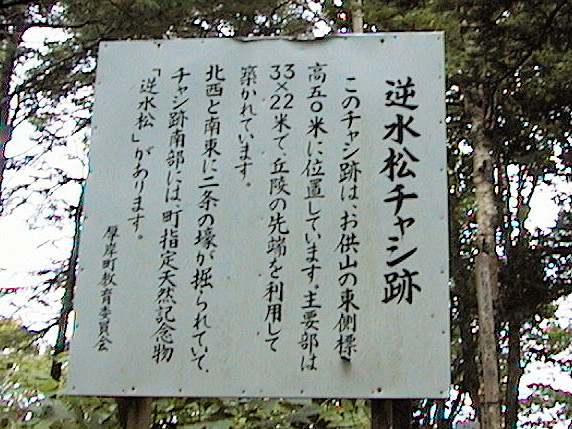 逆水松チャシ跡
このチャシ跡は、お供山の東側標
高五〇米に位置しています。主要部は
33×22米で、丘陵の先端を利用して
築かれています。
北西と南東に一条の壕が掘られていて、
チャシ跡南部には、町指定天然記念物
「逆水松」があります。
厚岸町教育委員会